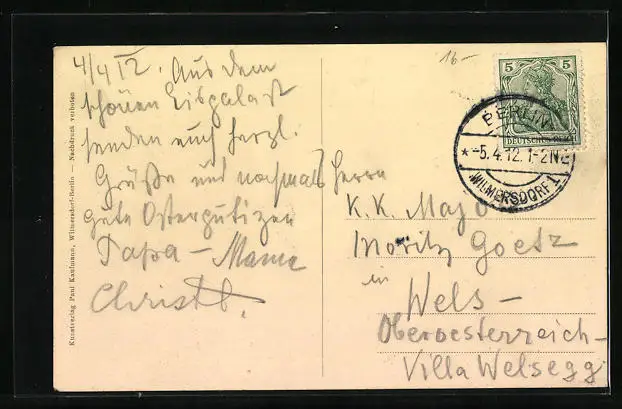 4/4 12. Aus dem
schönen Eispalast
senden euch herzl.
Grüße und nochmals
gute Ostern
Papa – Mama
Christl.
Herrn
K. K. Major
Moritz Goetz
in
Wels –
Oberoesterreich –
Villa Welsegg
16 –
5 5
DEUTSCHES REICH
BERLIN
* -5.4.12.1-2N.
WILMERSDORF 1
Kunstverlag Paul Kaufmann, Wilmersdorf-Berlin — Nachdruck verboten